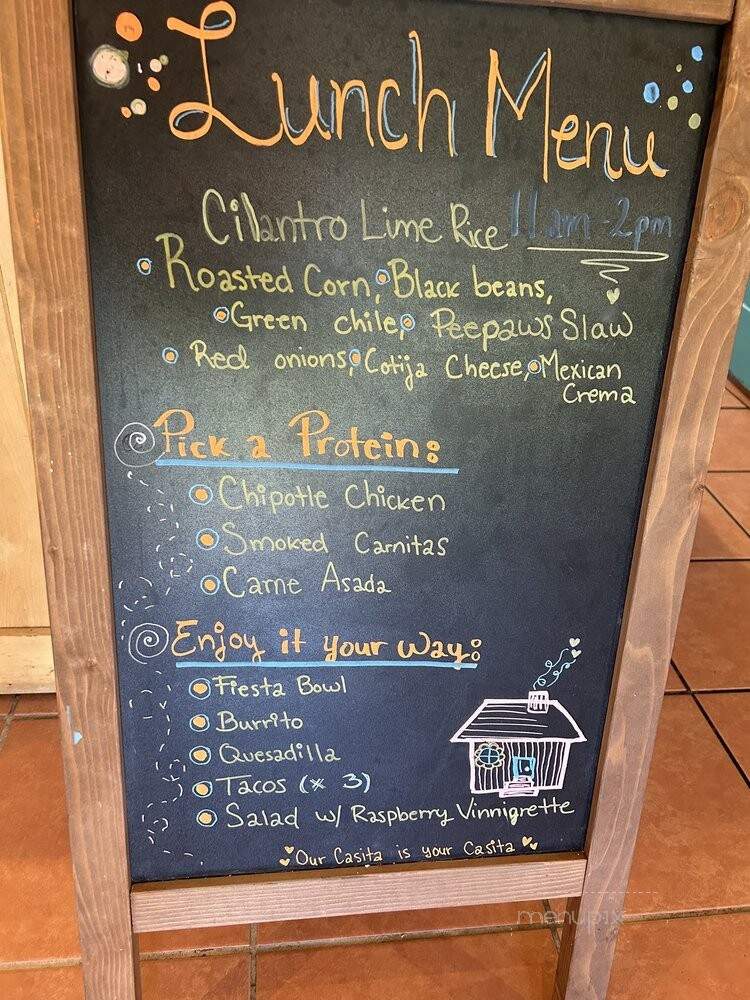 Lunch Menu
Cilantro Lime Rice 11am-2pm
Roasted Corn, Black beans,
Green chile, Peepaws Slaw
Red onions, Cotija Cheese, Mexican
Crema
Pick a Protein:
Chipotle Chicken
Smoked Carnitas
Carne Asada
Enjoy it your way:
Fiesta Bowl
Burrito
Quesadilla
Tacos (x 3)
Salad w/ Raspberry Vinnigrette
Our Casita is your Casita
menupix